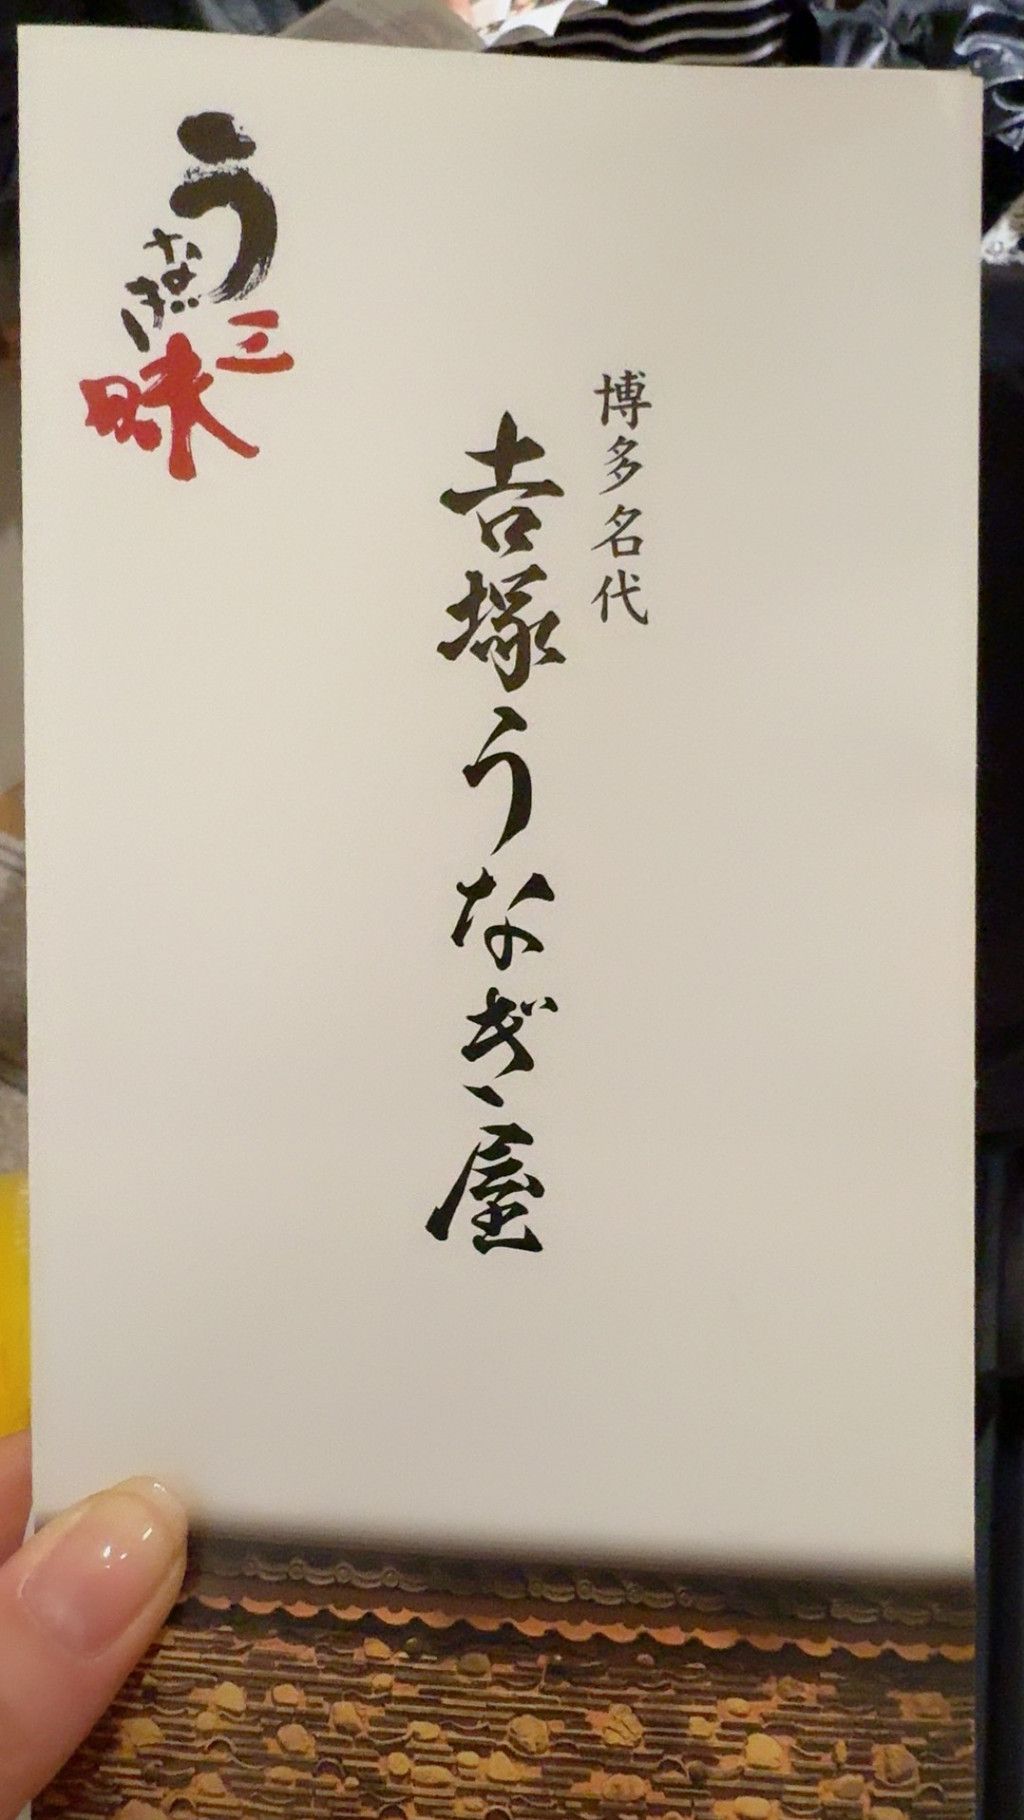 うなぎ
三昧
博多名代
𠮷塚うなぎ屋